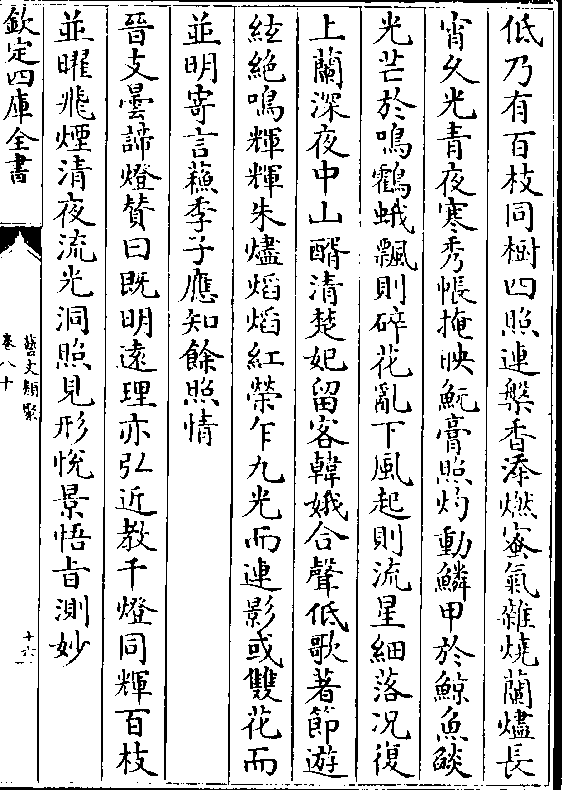 低乃有百枝同樹四照連槃香添燃蜜氣雜燒蘭燼長
宵久光青夜寒秀帳掩映魭膏照灼動鱗甲於鯨魚燄
光芒於鳴鶴蛾飄則碎花亂下風起則流星細落况復
上蘭深夜中山醑清楚妃留客韓娥合聲低歌著節遊
絃絶鳴輝輝朱燼熖熖紅榮乍九光而連影或雙花而
並明寄言蘓季子應知餘照情
晉支曇諦燈賛曰既明遠理亦弘近教千燈同輝百枝
並曜飛煙清夜流光洞照見形悅景悟旨測妙
欽定四庫全書
藝文類聚
卷八十
十六